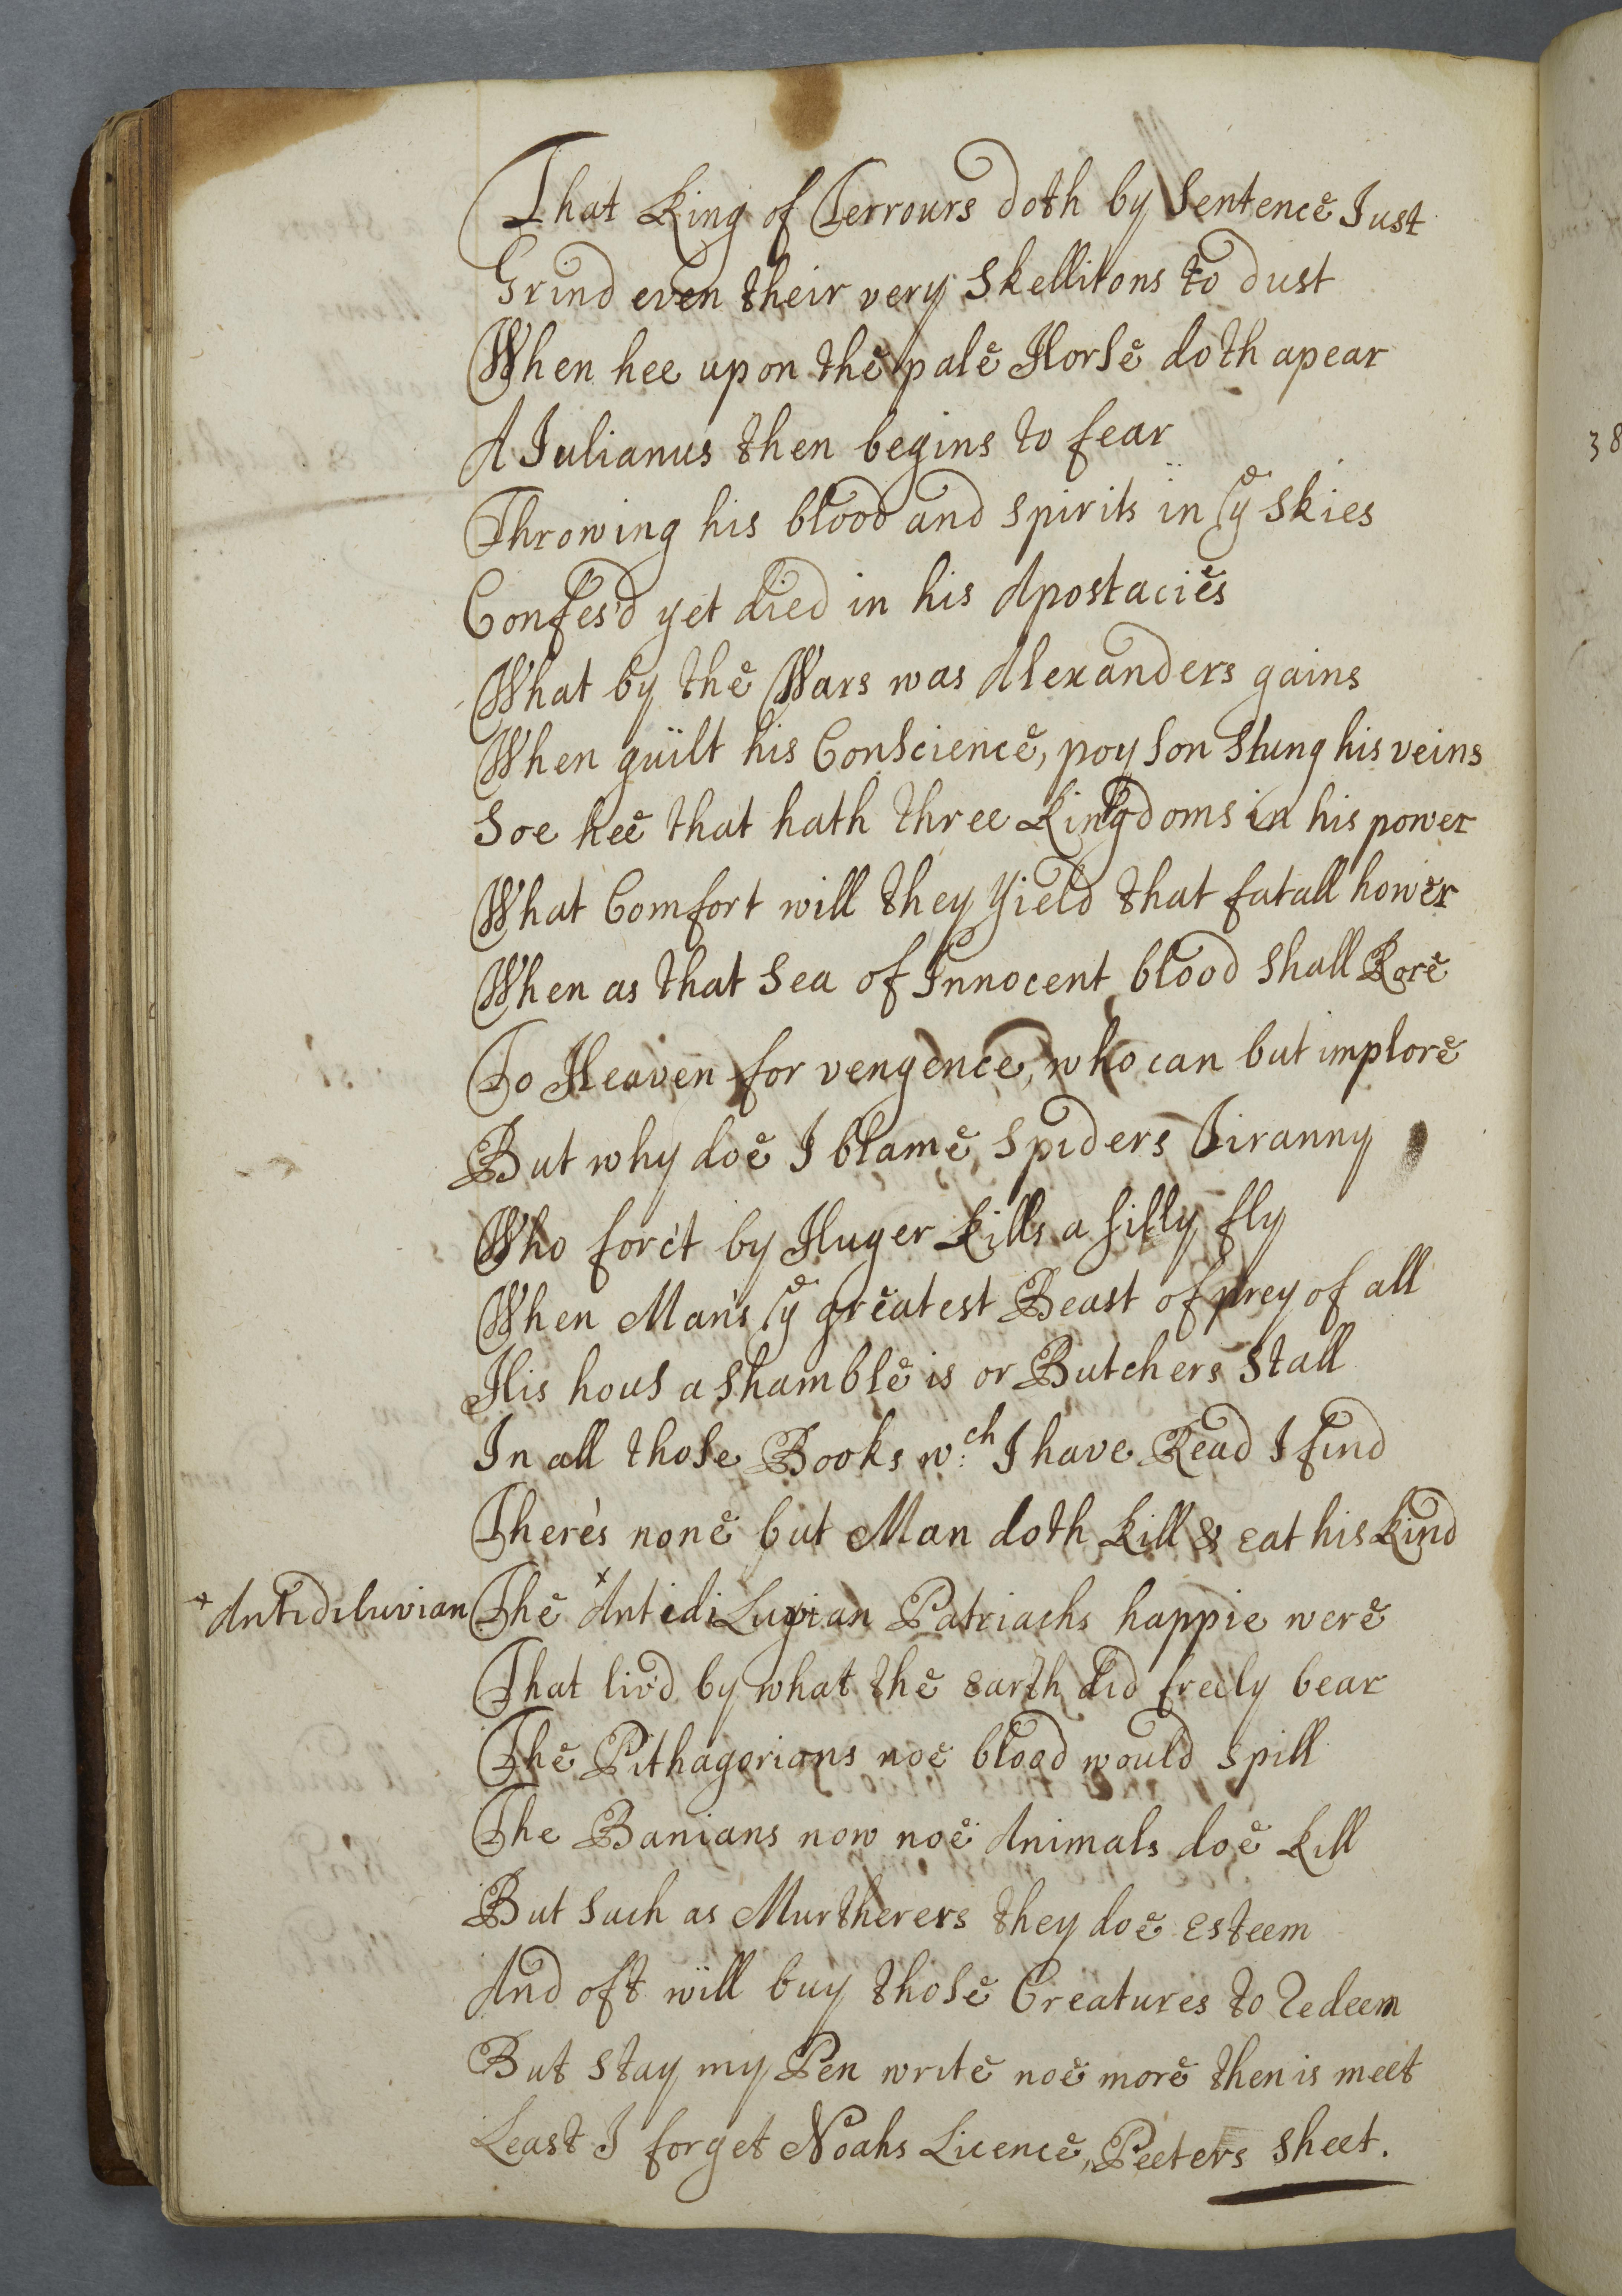 That King of Terrours doth by Sentence Just
Grind even their very Skellitons to dust
When hee upon the pale Horse doth apear
A Julianus then begins to fear
Throwing his blood and spirits in yᵉ skies
Confes'd yet died in his Apostacies
What by the Wars was Alexanders gains
When guilt his Conscience, poyson stung his veins
Soe hee that hath three Kingdoms in his power
What Comfort will they Yield that fatall hower
When as that Sea of Innocent blood shall Rore
To Heaven for vengence, who can but implore
But why doe I blame Spiders Tiranny
Who forc't by Huger kills a silly fly
When Man's yᵉ greatest Beast of prey of all
His hous a Shamble is or Butchers Stall
In all those Books wᶜʰ I have Read I find
There's none but Man doth kill & eat his kind
+ Antidiluvian The + AntediLuvian Patriachs happie were
That liv'd by what the earth did freely bear
The Pithagorians noe blood would spill
The Banians now noe Animals doe kill
But such as Murtherers they doe esteem
And oft will buy those Creatures to redeem
But stay my Pen write noe more then is meet
Least I forget Noahs Licence, Peeters sheet.
38